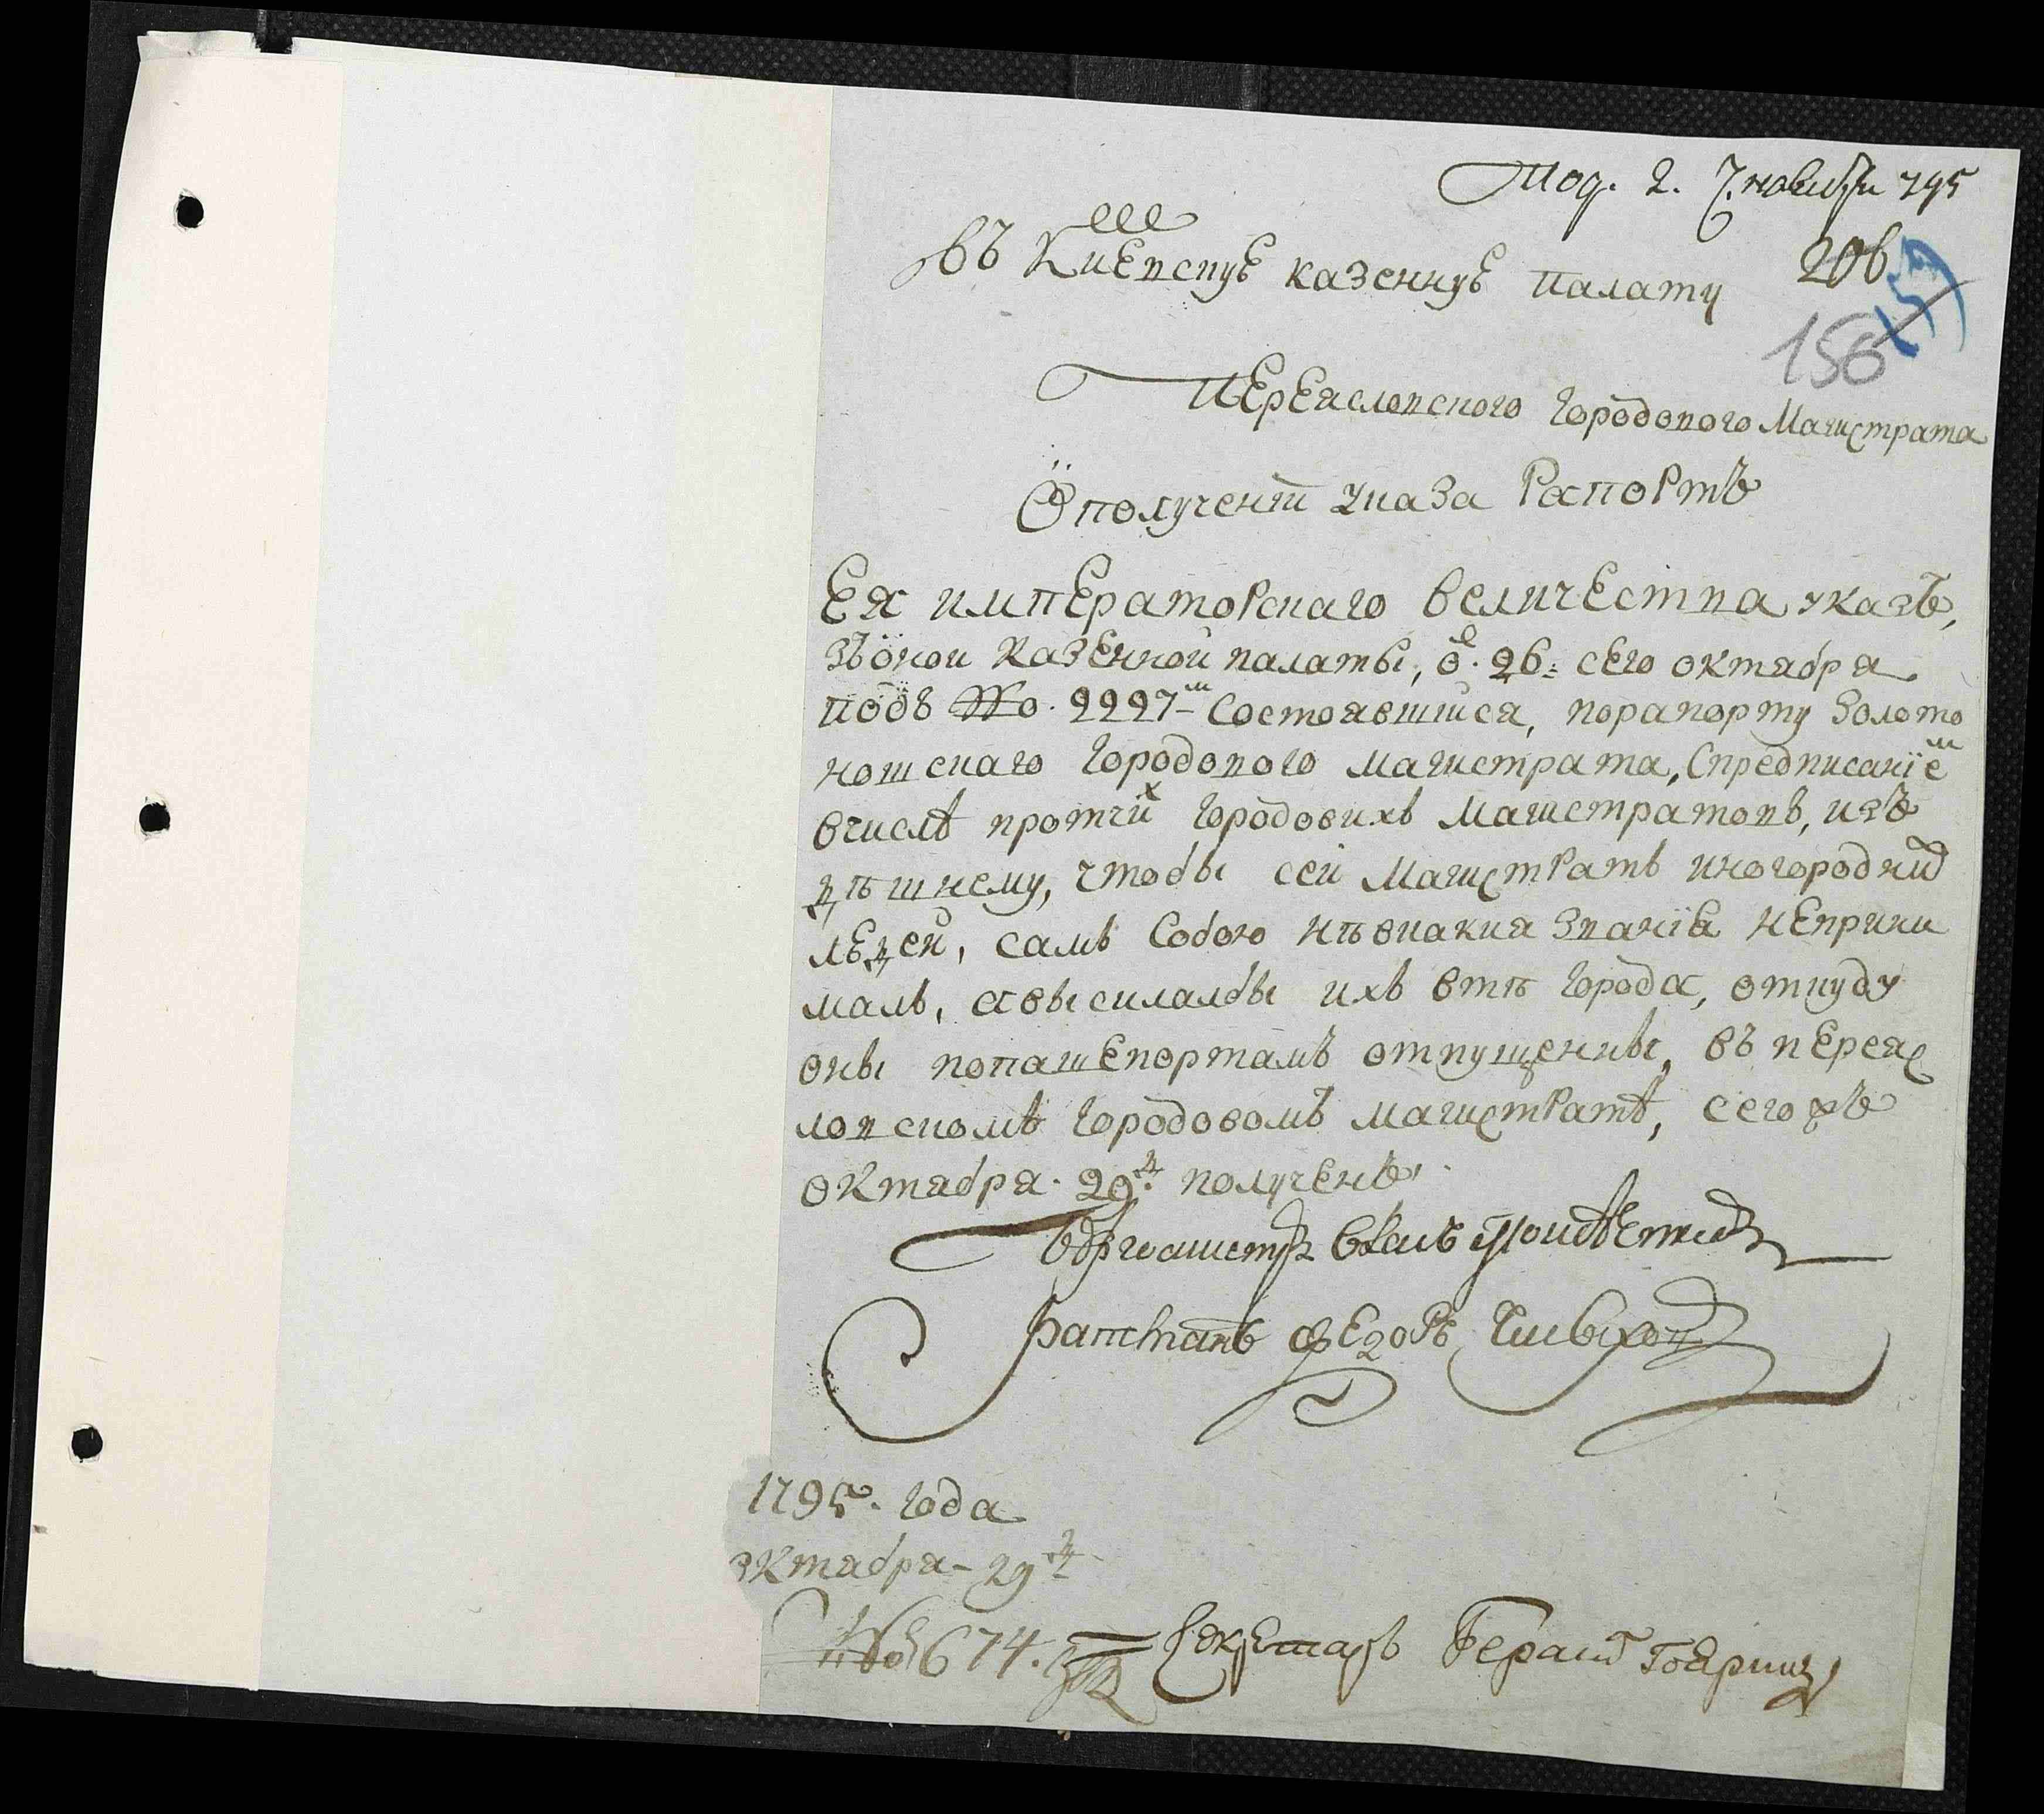 Под. 2. ноября 795
206
въ Киевскую казенную палату
157
156
Переясловского Городового Магистрата
О получении указа Рапортъ
Ея императорскаго величества указъ,
зъ оной казенной палаты, о. 26: сего октября
подъ №о. 2227м состоявшийся, порапорту Золото
ношскаго Городового магистрата, Спредписаніемъ
вчислѣ протчих Городовихъ Магистратовъ, изъ
дѣшнему, чтобы сей Магистратъ иногородних
людей, самъ Собою нѣвкакия званія неприни
малъ, авысилалбы ихъ втѣ города, откуду
оны попашепортамъ отпущенны, въ переяс
ловскомъ Городовомъ магистратѣ, сегожъ
октября. 29д. полученъ.
Бургомистръ
Ратманъ Федоръ
1795. Года
октября - 29д
№о 674.
Секретарь Герасим